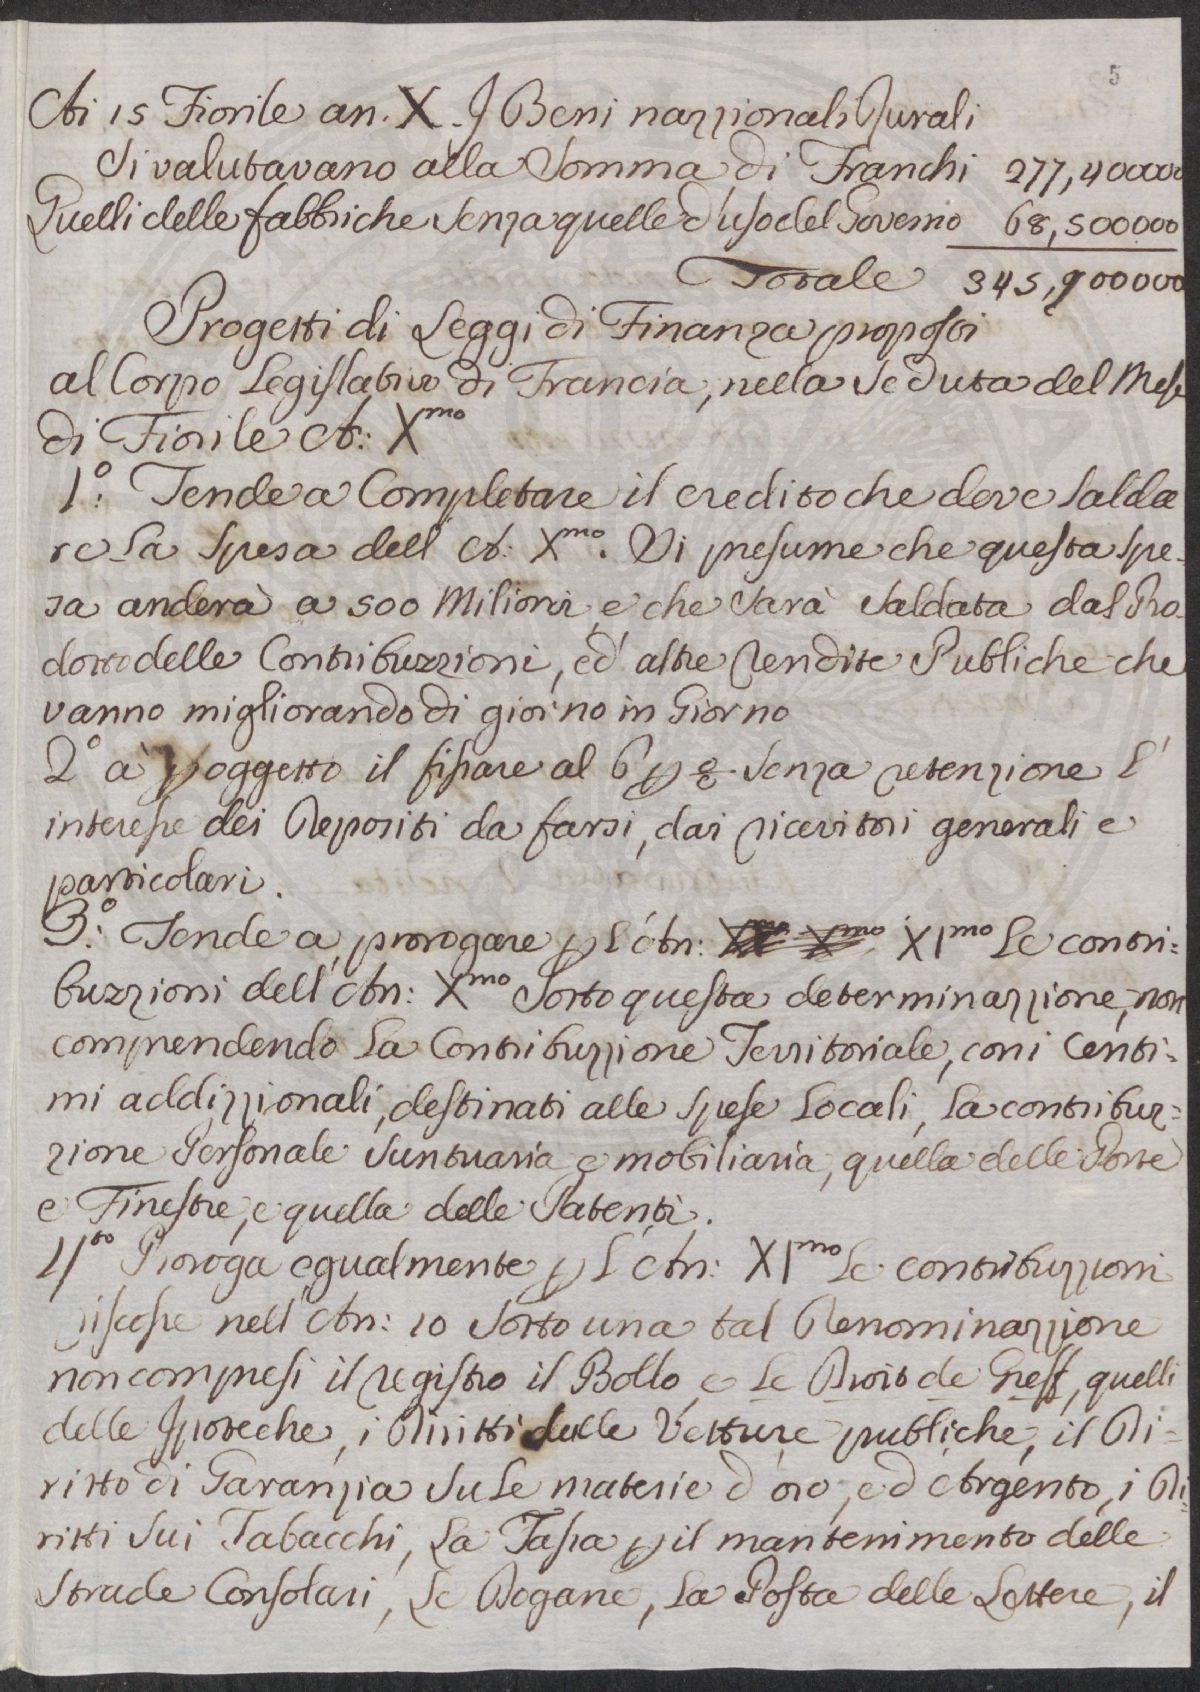 5
Ai 15 Fiorile an. X. I Beni nazzionali Rurali
si valutavano alla Somma di Franchi 277,400000
Quelli delle fabbriche senza quelle d'uso del Governo 68,500000
Totale 345,900000
Progetti di Leggi di Finanza proposti
al Corpo Legislativo di Francia, nella Seduta del Mese
di Fiorile A: Xmo
1º: Tende a Completare il credito che deve salda
re La Spesa dell' A: Xmo. Si presume che questa spe-
sa anderà a 500 Milioni, e che sarà saldata dal Pro-
dotto delle Contribuzzioni, ed altre Rendite Publiche che
vanno migliorando di giorno in Giorno
2º à p oggetto il fissare al 6 p % senza retenzione l'
interesse dei Depositi da farsi, dai ricevitori generali e
particolari.
3º: Tende a prorogare p L'An: XImo Le contri=
buzzioni dell' An: Xmo Sotto questa determinazzione, non
comprendendo La Contribuzzione Territoriale, con i Centi=
mi addizzionali, destinati alle Spese Locali, La contribuz=
zione Personale Suntuaria e mobiliaria, quella delle Porte
e Finestre, e quella delle Patenti.
4to Proroga egualmente p L'An: XImo Le contribuzzioni
riscosse nell' An: 10 sotto una tal Denominazzione
non compresi il registro il Bollo, e Le Droit de Greff, quelli
delle Ipoteche, i Diritti delle Vetture publiche, il Di=
ritto di Garanzia su Le materie d'oro, ed Argento, i Di=
ritti sui Tabacchi, La Tassa p il mantenimento delle
Strade Consolari, Le Dogane, La Posta delle Lettere, il